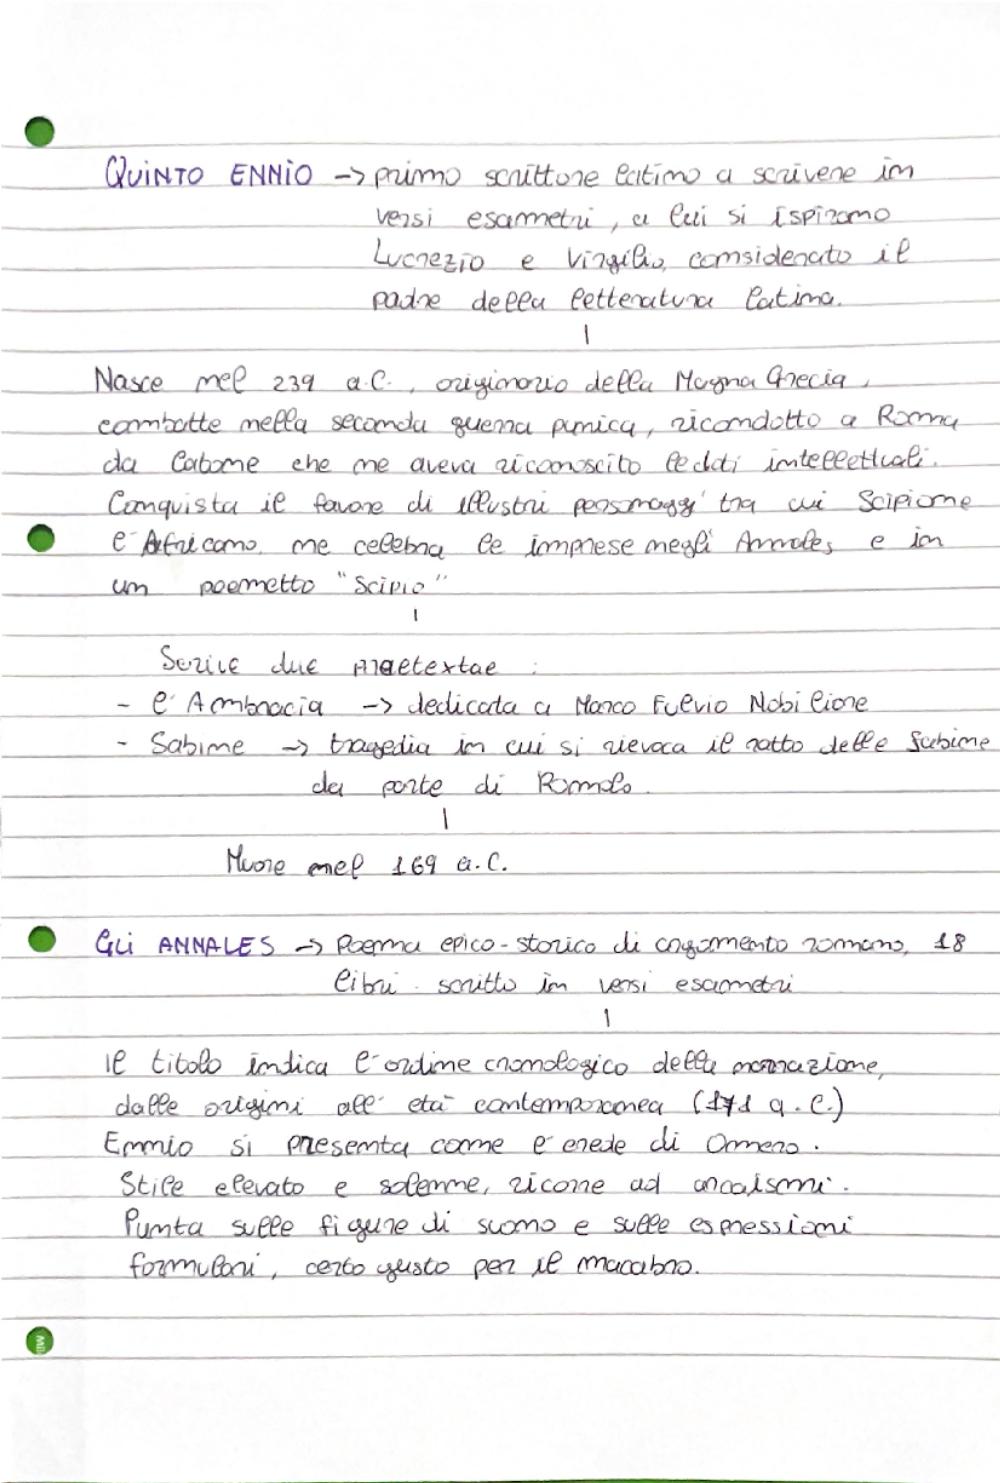 QUINTO ENNIO -> primo scrittore latino a scrivere in
versi esametri, a lui si ispirano
Lucrezio e Virgilio, considerato il
padre della letteratura latina.
Nasce nel 239 a.C., originario della Magna Grecia,
combatte nella seconda guerra punica, ricondotto a Roma
da Catone che ne aveva riconoscito le doti intellettuali.
Conquista il favore di illustri personaggi tra cui Scipione
l'Africano, ne celebra le imprese negli Annales e in
un poemetto "Scipio"
Scrive due praetextae :
- l'Ambracia -> dedicata a Marco Fulvio Nobiliore
- Sabine -> tragedia in cui si rievoca il ratto delle Sabine
da parte di Romolo.
Muore nel 169 a.C.
Gli ANNALES -> Poema epico-storico di argomento romano, 18
libri. scritto in versi esametri
Il titolo indica l'ordine cronologico della narrazione,
dalle origini all'età contemporanea (171 a.C.)
Ennio si presenta come l'erede di Omero.
Stile elevato e solenne, ricorre ad arcaismi.
Punta sulle figure di suono e sulle espressioni
formulari, certo gusto per il macabro.